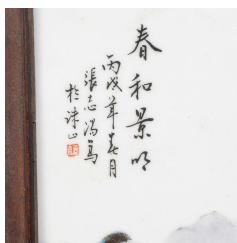 春和景明
丙戌年春月
張志湯寫
於珠山